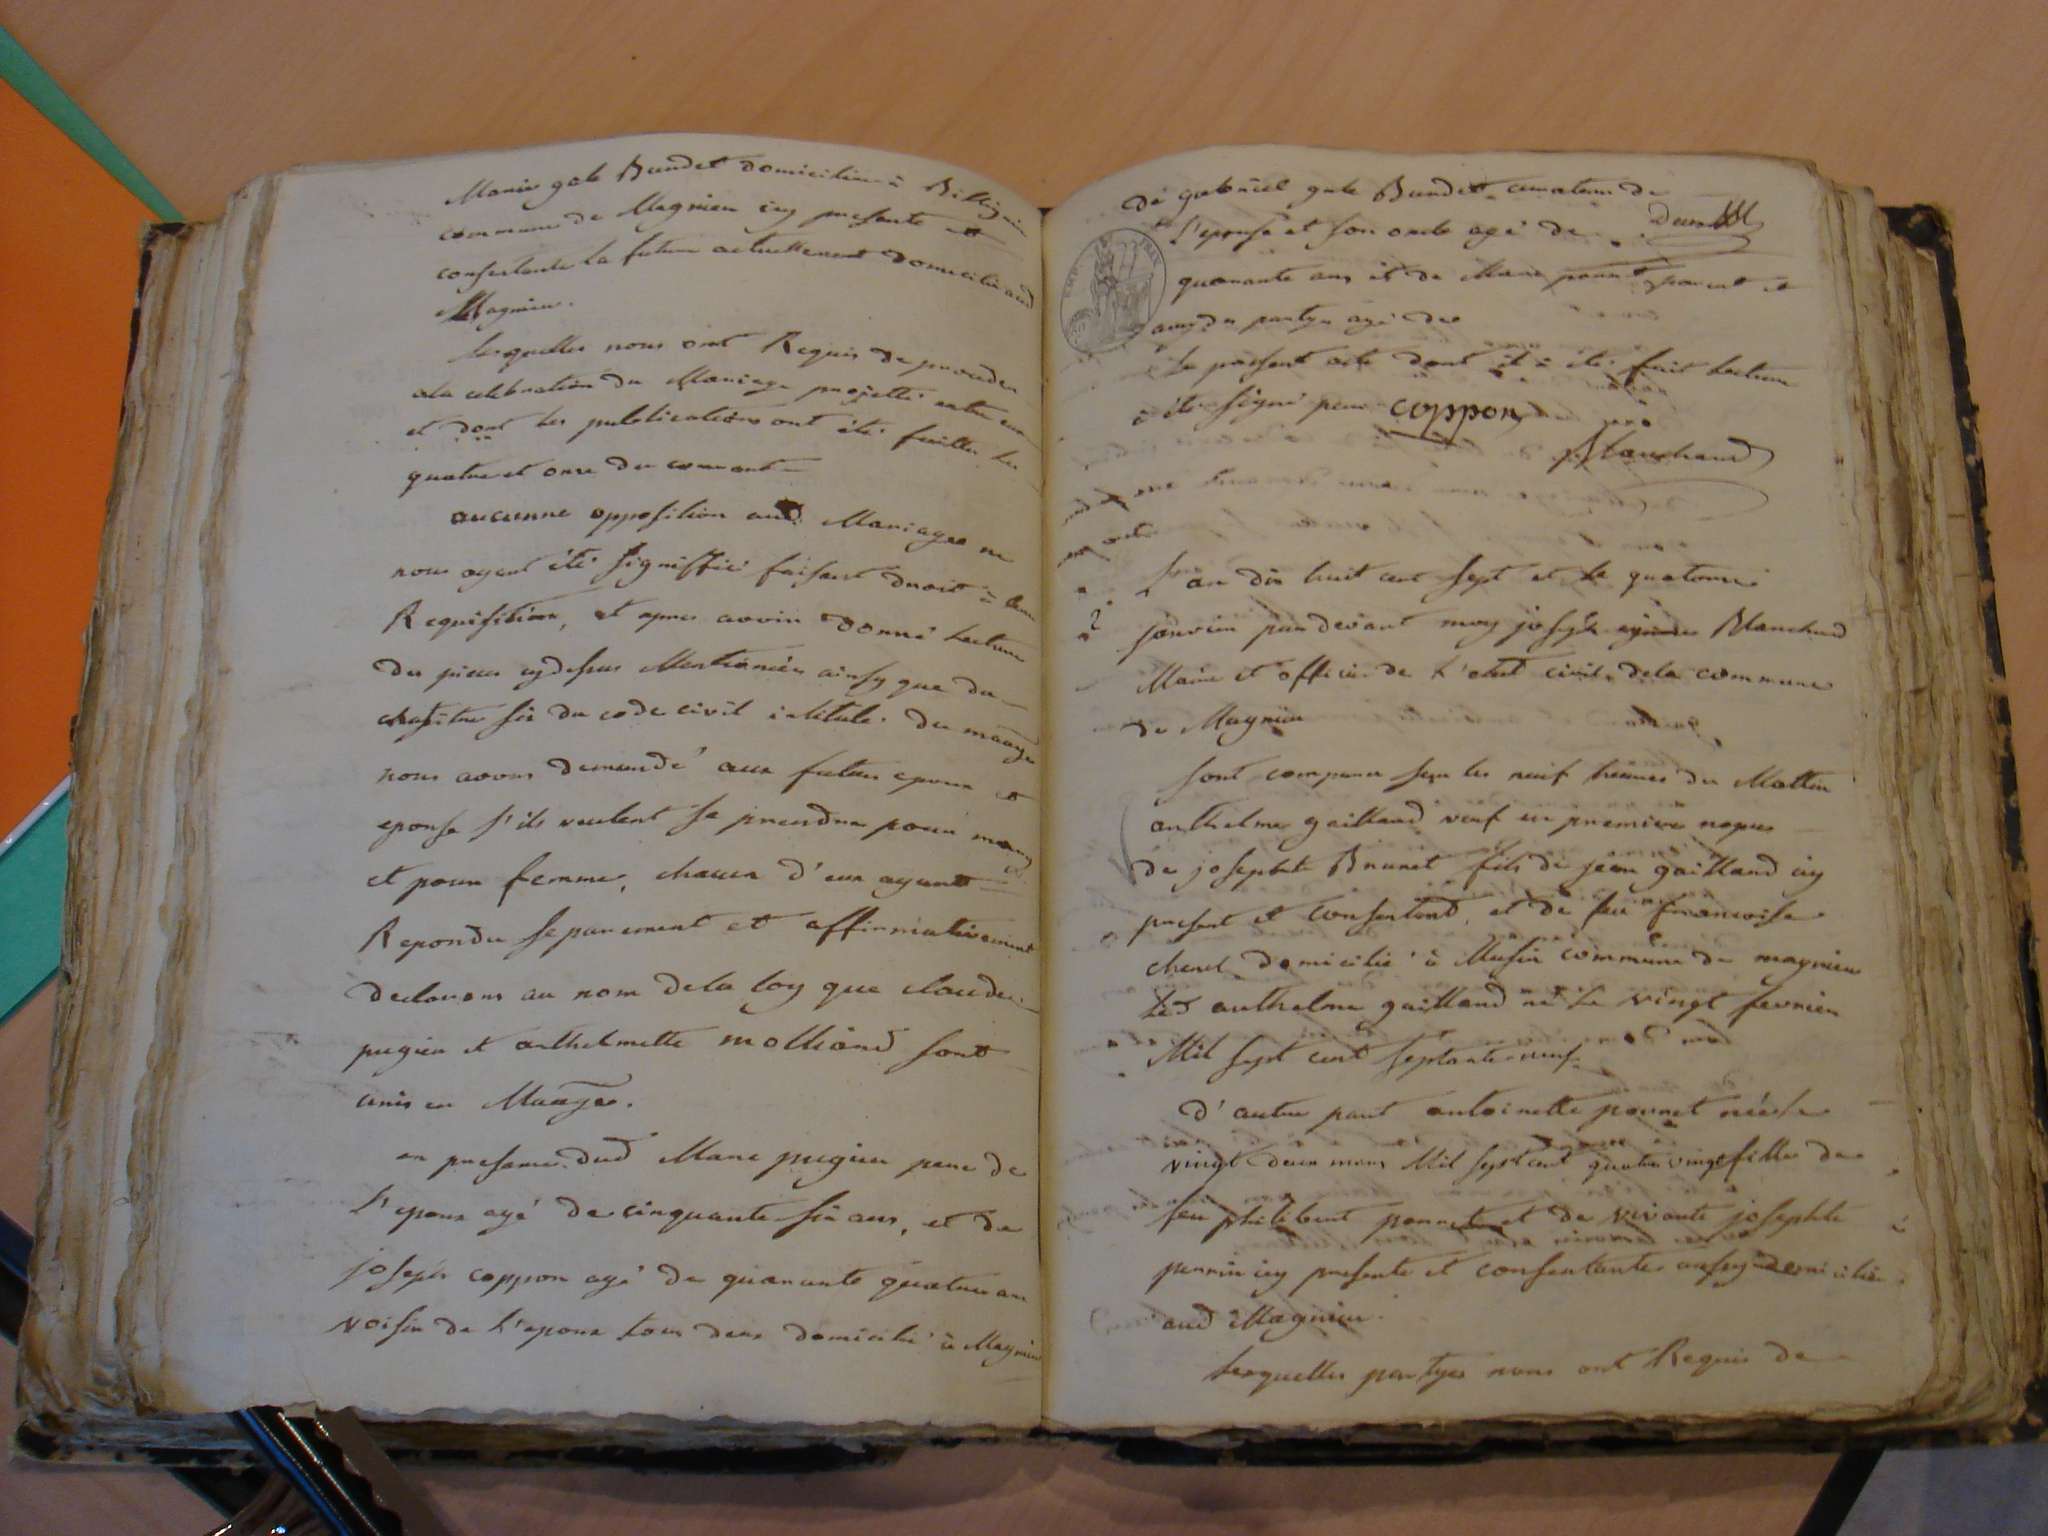 Marie gale Bundet domiciliée à Billignin
commune de Magnieu icy presente et
consentente la future actuellement domiciliée aud
Magnieu.
Lesquelles nous ont Requis de proceder
a La celebration du Mariage projetté entre eux
et dont les publications ont été faittes les
quatre et onze du courant
aucunne opposition aud Mariage ne
nous ayant été signiffié faisant droit à leur
Requisition, et apres avoir donné lecture
des pieces cydessus Mentionées ainsy que du
chapitre six du code civil intitulé du maage
nous avons demandé aux futurs epoux et
epouse s'ils veulent se prendre pour mary
et pour femme, chacun d'eux ayant
Repondu separement et affirmativement
declarons au nom de la loy que claude
pugieu et anthelmette molliand sont
unis en Maage.
en presence dud Marc pugieu pere de
l'epoux agé de cinquante six ans, et de
joseph coppon agé de quarante quatre an
voisin de l'epoux tous deux domicilié à Magnieu
de gabriel gale Bundet curateur de
l'epouse et son oncle agé de
quarante ans et de Marc ponnet parent et
amy des partyes agé de
Le present acte dont il a été fait Lecture
à été signé par coppon
Blanchard
L'an dix huit cent sept et le quatorze
janvier pardevant moy joseph Blanchard
Maire et officier de l'etat civil de la commune
de Magnieu
sont comparu sur les neuf heures du Mattin
anthelme gaillard veuf en premiere nopces
de josephte Brunet fils de jean gaillard icy
present et consentend, et de feu francoise
domicilié à Musin commune de magnieu
Led anthelme gaillard né le vingt fevrier
Mil sept cent septante neuf.
d'autre part antoinette ponnet née le
vingt deux mars Mil sept cent quatre vingt fille de
feu philibert ponnet et de vivante josephte
perrin icy presente et consentante aussy domiciliée
aud Magnieu.
Lesquelles partyes nous ont Requis de